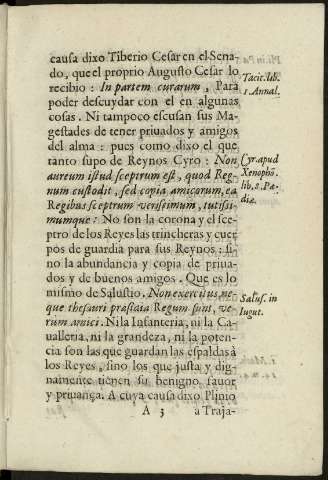 causa dixo Tiberio Cesar en el Sena-
do, que el proprio Augusto Cesar lo
recibio: In partem curarum, Para
poder descuydar con el en algunas
cosas. Ni tampoco escusan sus Ma-
gestades de tener priuados y amigos
del alma: pues como dixo el que
tanto supo de Reynos Cyro: Non
aureum istud sceptrum est, quod Reg-
num custodit, sed copia amicorum, ea
Regibus sceptrum verissimum, tutissi-
mumque: No son la corona y el sce-
ptro de los Reyes las trincheras y cuer
pos de guardia para sus Reynos: si-
no la abundancia y copia de priua-
dos y de buenos amigos. Que es lo
mismo de Salustio. Non exercitus, ne-
que thesauri præsidia Regum sunt, ve-
rum amici. Ni la Infanteria, ni la Ca-
ualleria, ni la grandeza, ni la poten-
cia son las que guardan las espaldas à
los Reyes, sino los que justa y dig-
namente tienen su benigno fauor
y priuança. A cuya causa dixo Plinio
A 3 a Traja-
Tacit. lib.
1. Annal.
Cyr. apud
Xenopho.
lib. 8. Pæ-
diæ.
Salus. in
Iugut.